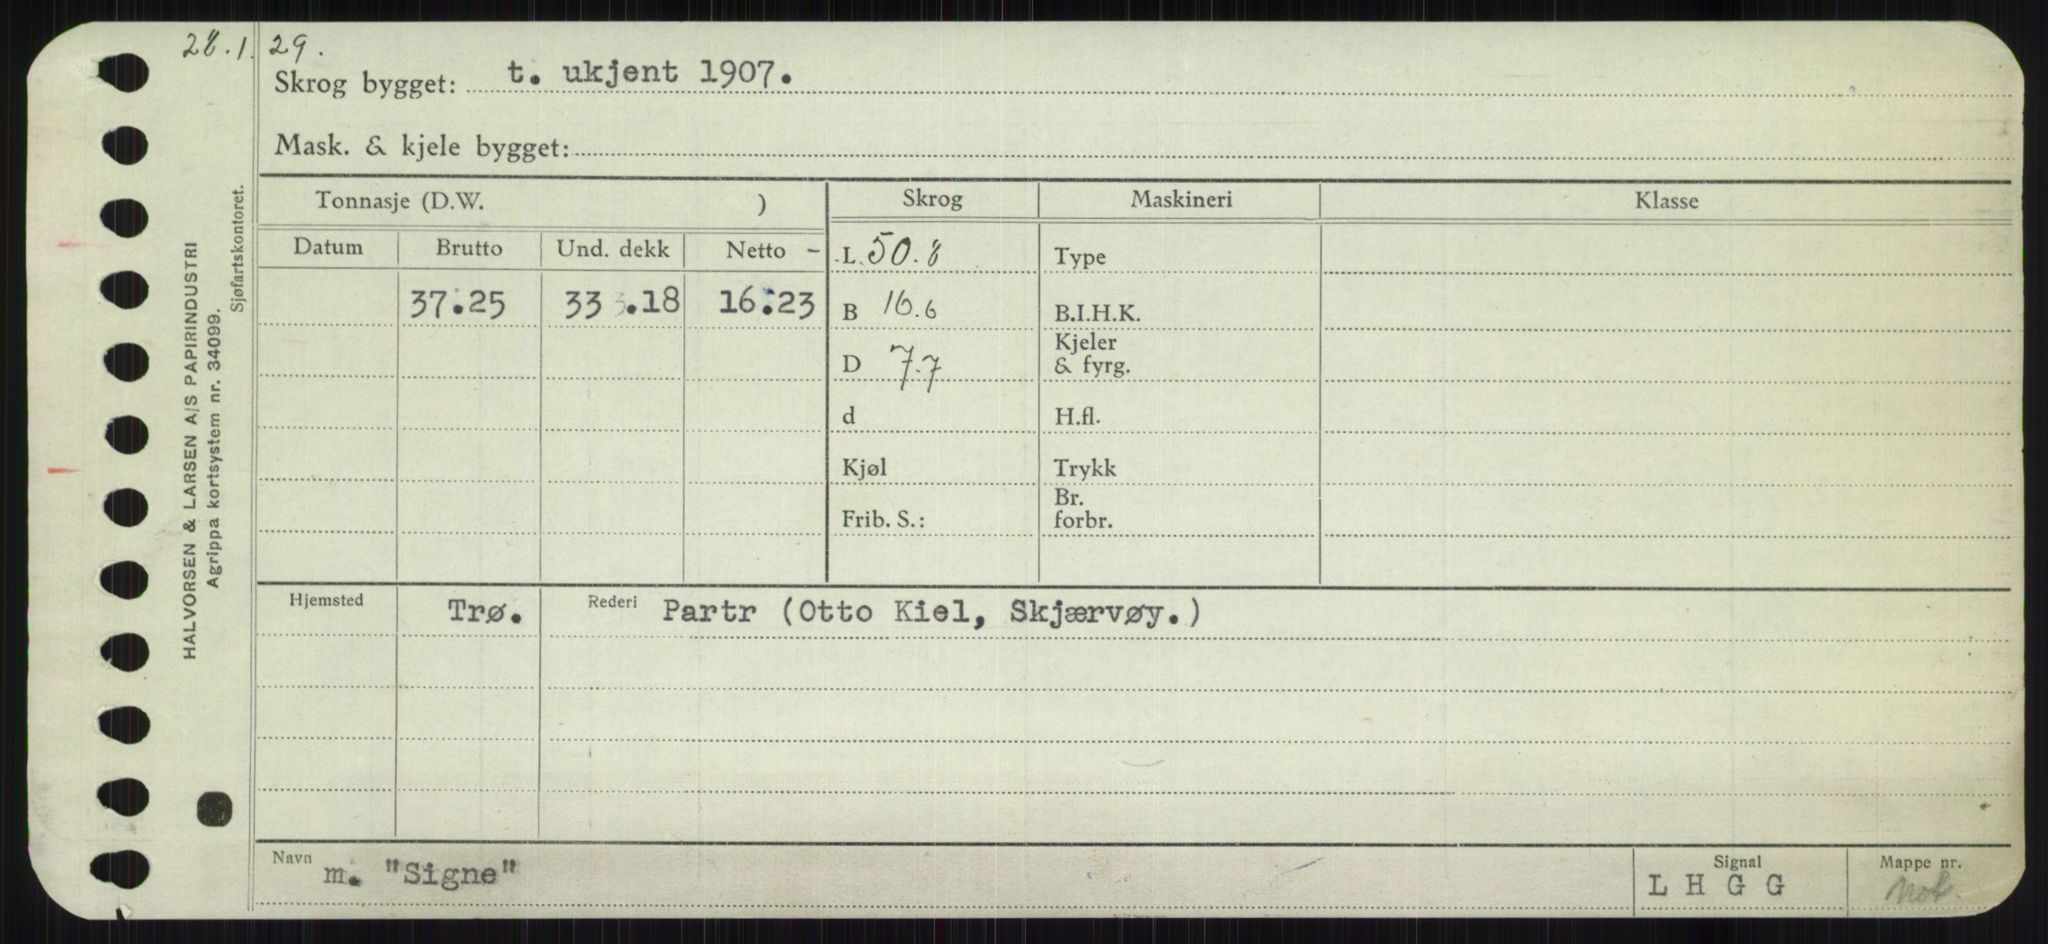 28.1.29.
Skrog bygget: t. ukjent 1907.
Mask. & kjele bygget:
Tonnasje (D.W. ) Skrog Maskineri Klasse
Datum Brutto Und. dekk Netto - L. 50.8 Type
37.25 33 .18 16.23 B 16.6 B.I.H.K.
D 7.7 Kjeler & fyrg.
d H.fl.
Kjøl Trykk
Frib. S.: Br. forbr.
Hjemsted Trø. Rederi Partr (Otto Kiel, Skjærvøy.)
Navn m. "Signe" Signal L H G G Mappe nr. Mot.
HALVORSEN & LARSEN A/S PAPIRINDUSTRI
Agrippa kortsystem nr. 34099.
Sjøfartskontoret.